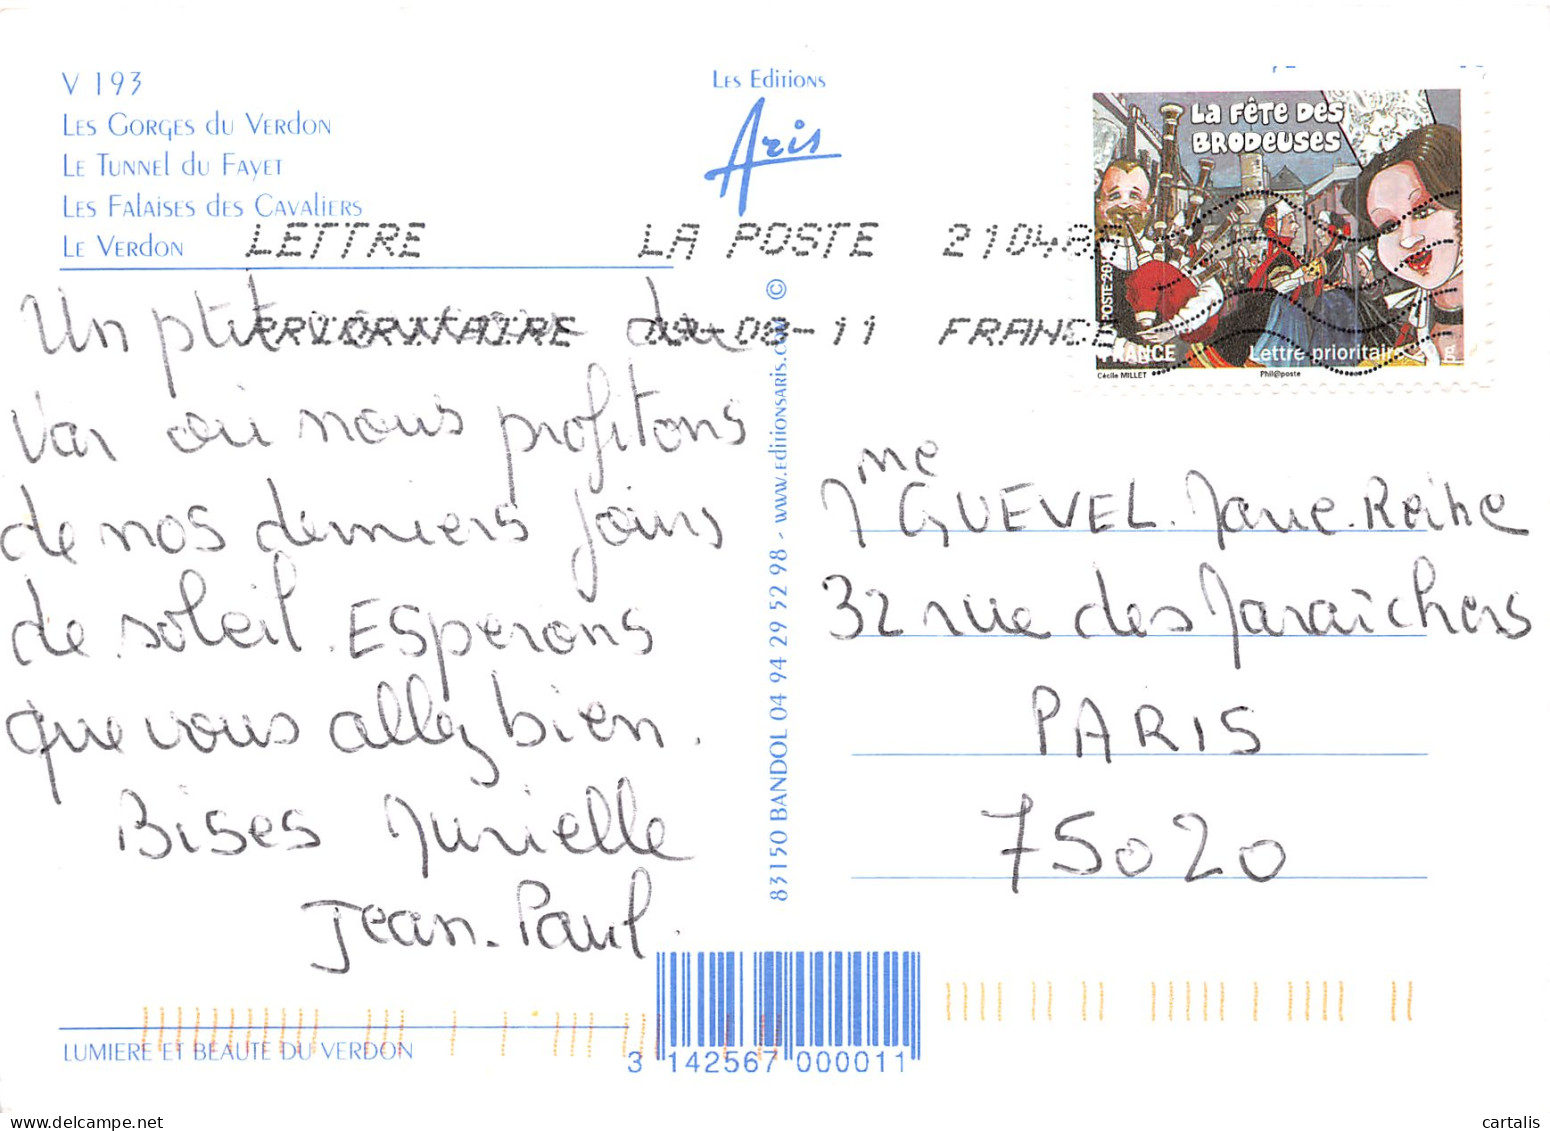 V 193
Les Gorges du Verdon
Le Tunnel du Fayet
Les Falaises des Cavaliers
Le Verdon
Les Editions
Aris
LA FÊTE DES
BRODEUSES
FRANCE
Lettre prioritaire 20 g
Cécile MILLET
Phil@poste
LETTRE LA POSTE
PRIORITAIRE -08-11 FRANCE
Un ptit du
Var où nous profitons
de nos derniers jours
de soleil. ESperons
que vous allez bien.
Bises Murielle
Jean-Paul.
83150 BANDOL 04 94 29 52 98 - www.editionsaris.com ©
Mme GUEVEL. Marie-Reine
32 rue des Maraîchers
PARIS
75020
LUMIERE ET BEAUTE DU VERDON
3 142567 000011
cartalis.com